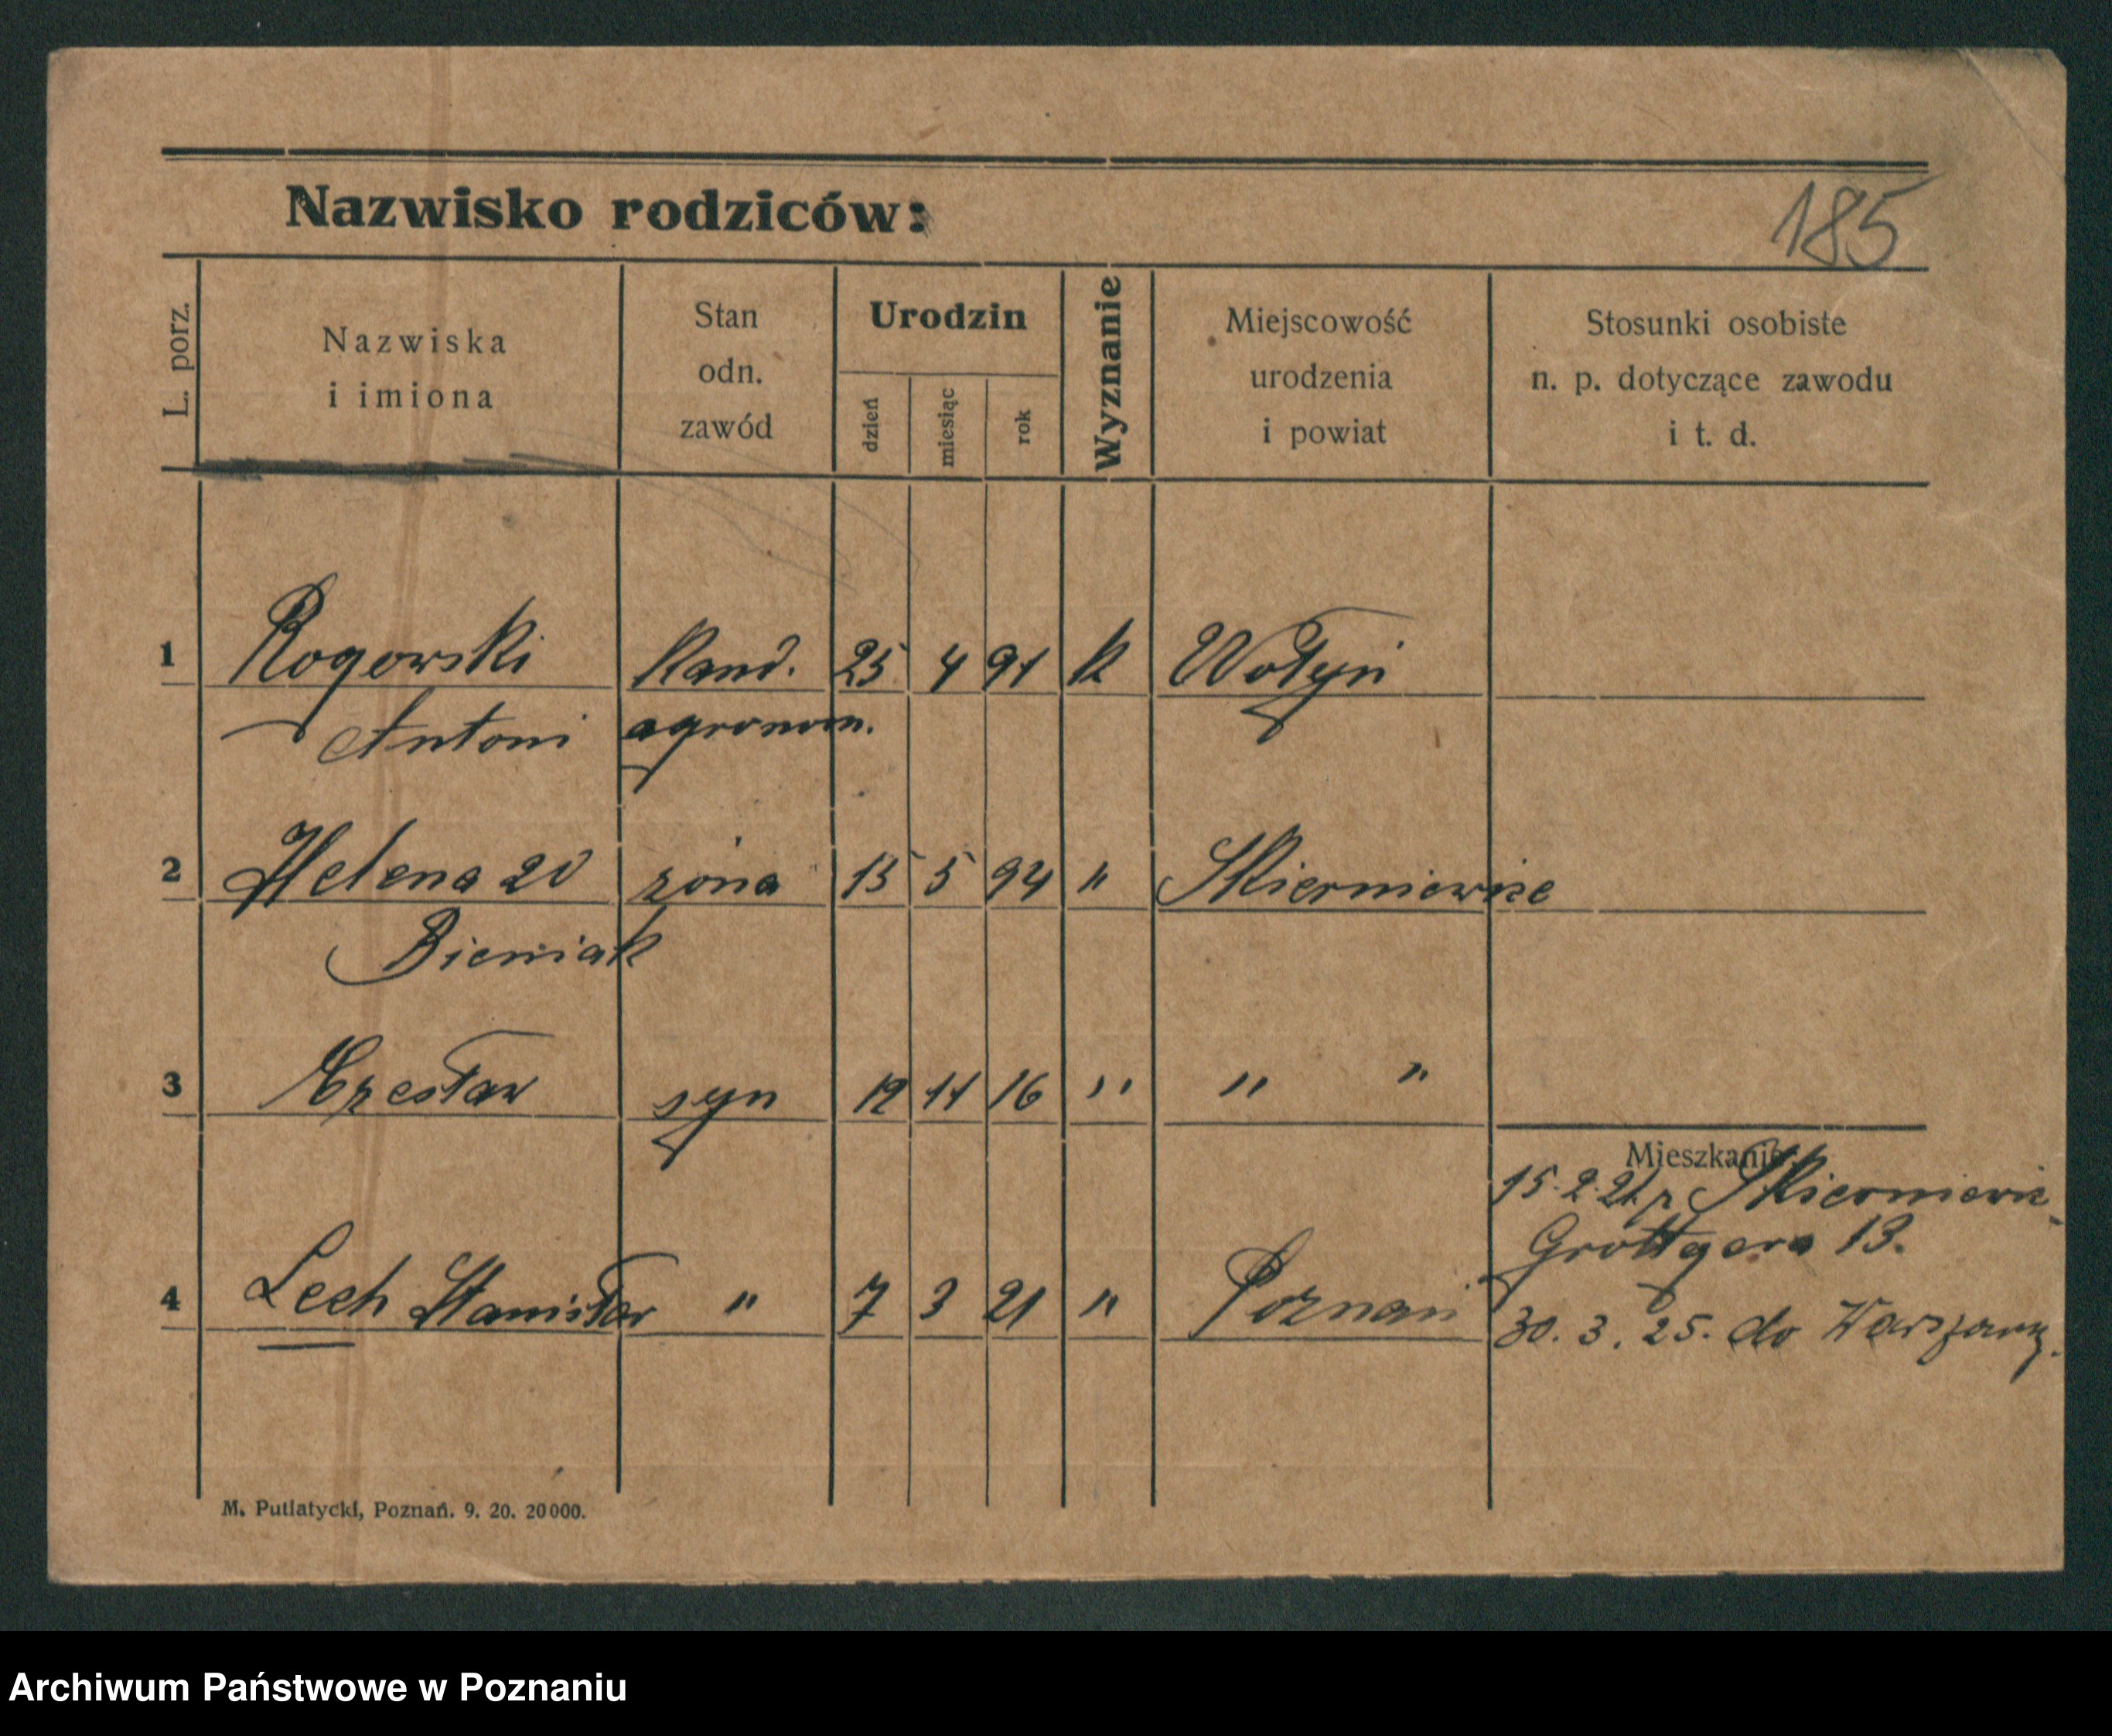 Nazwisko rodziców:
185
L. porz.
Nazwiska
i imiona
Stan
odn.
zawód
Urodzin
dzień
miesiąc
rok
Wyznanie
Miejscowość
urodzenia
i powiat
Stosunki osobiste
n. p. dotyczące zawodu
i t. d.
1 Rogowski Kand. 25 4 91 k Wołyń
Antoni agronom.
2 Helena zd żona 15 5 94 " Skierniewice
Bieniak
3 Czesław syn 12 11 16 " " "
Mieszkanie:
15.2.21 z Skierniewic
Grottgera 13.
4 Lech Stanisław " 7 3 21 " Poznań
30. 3. 25. do Warszawy.
M. Putiatycki, Poznań. 9. 20. 20000.
Archiwum Państwowe w Poznaniu